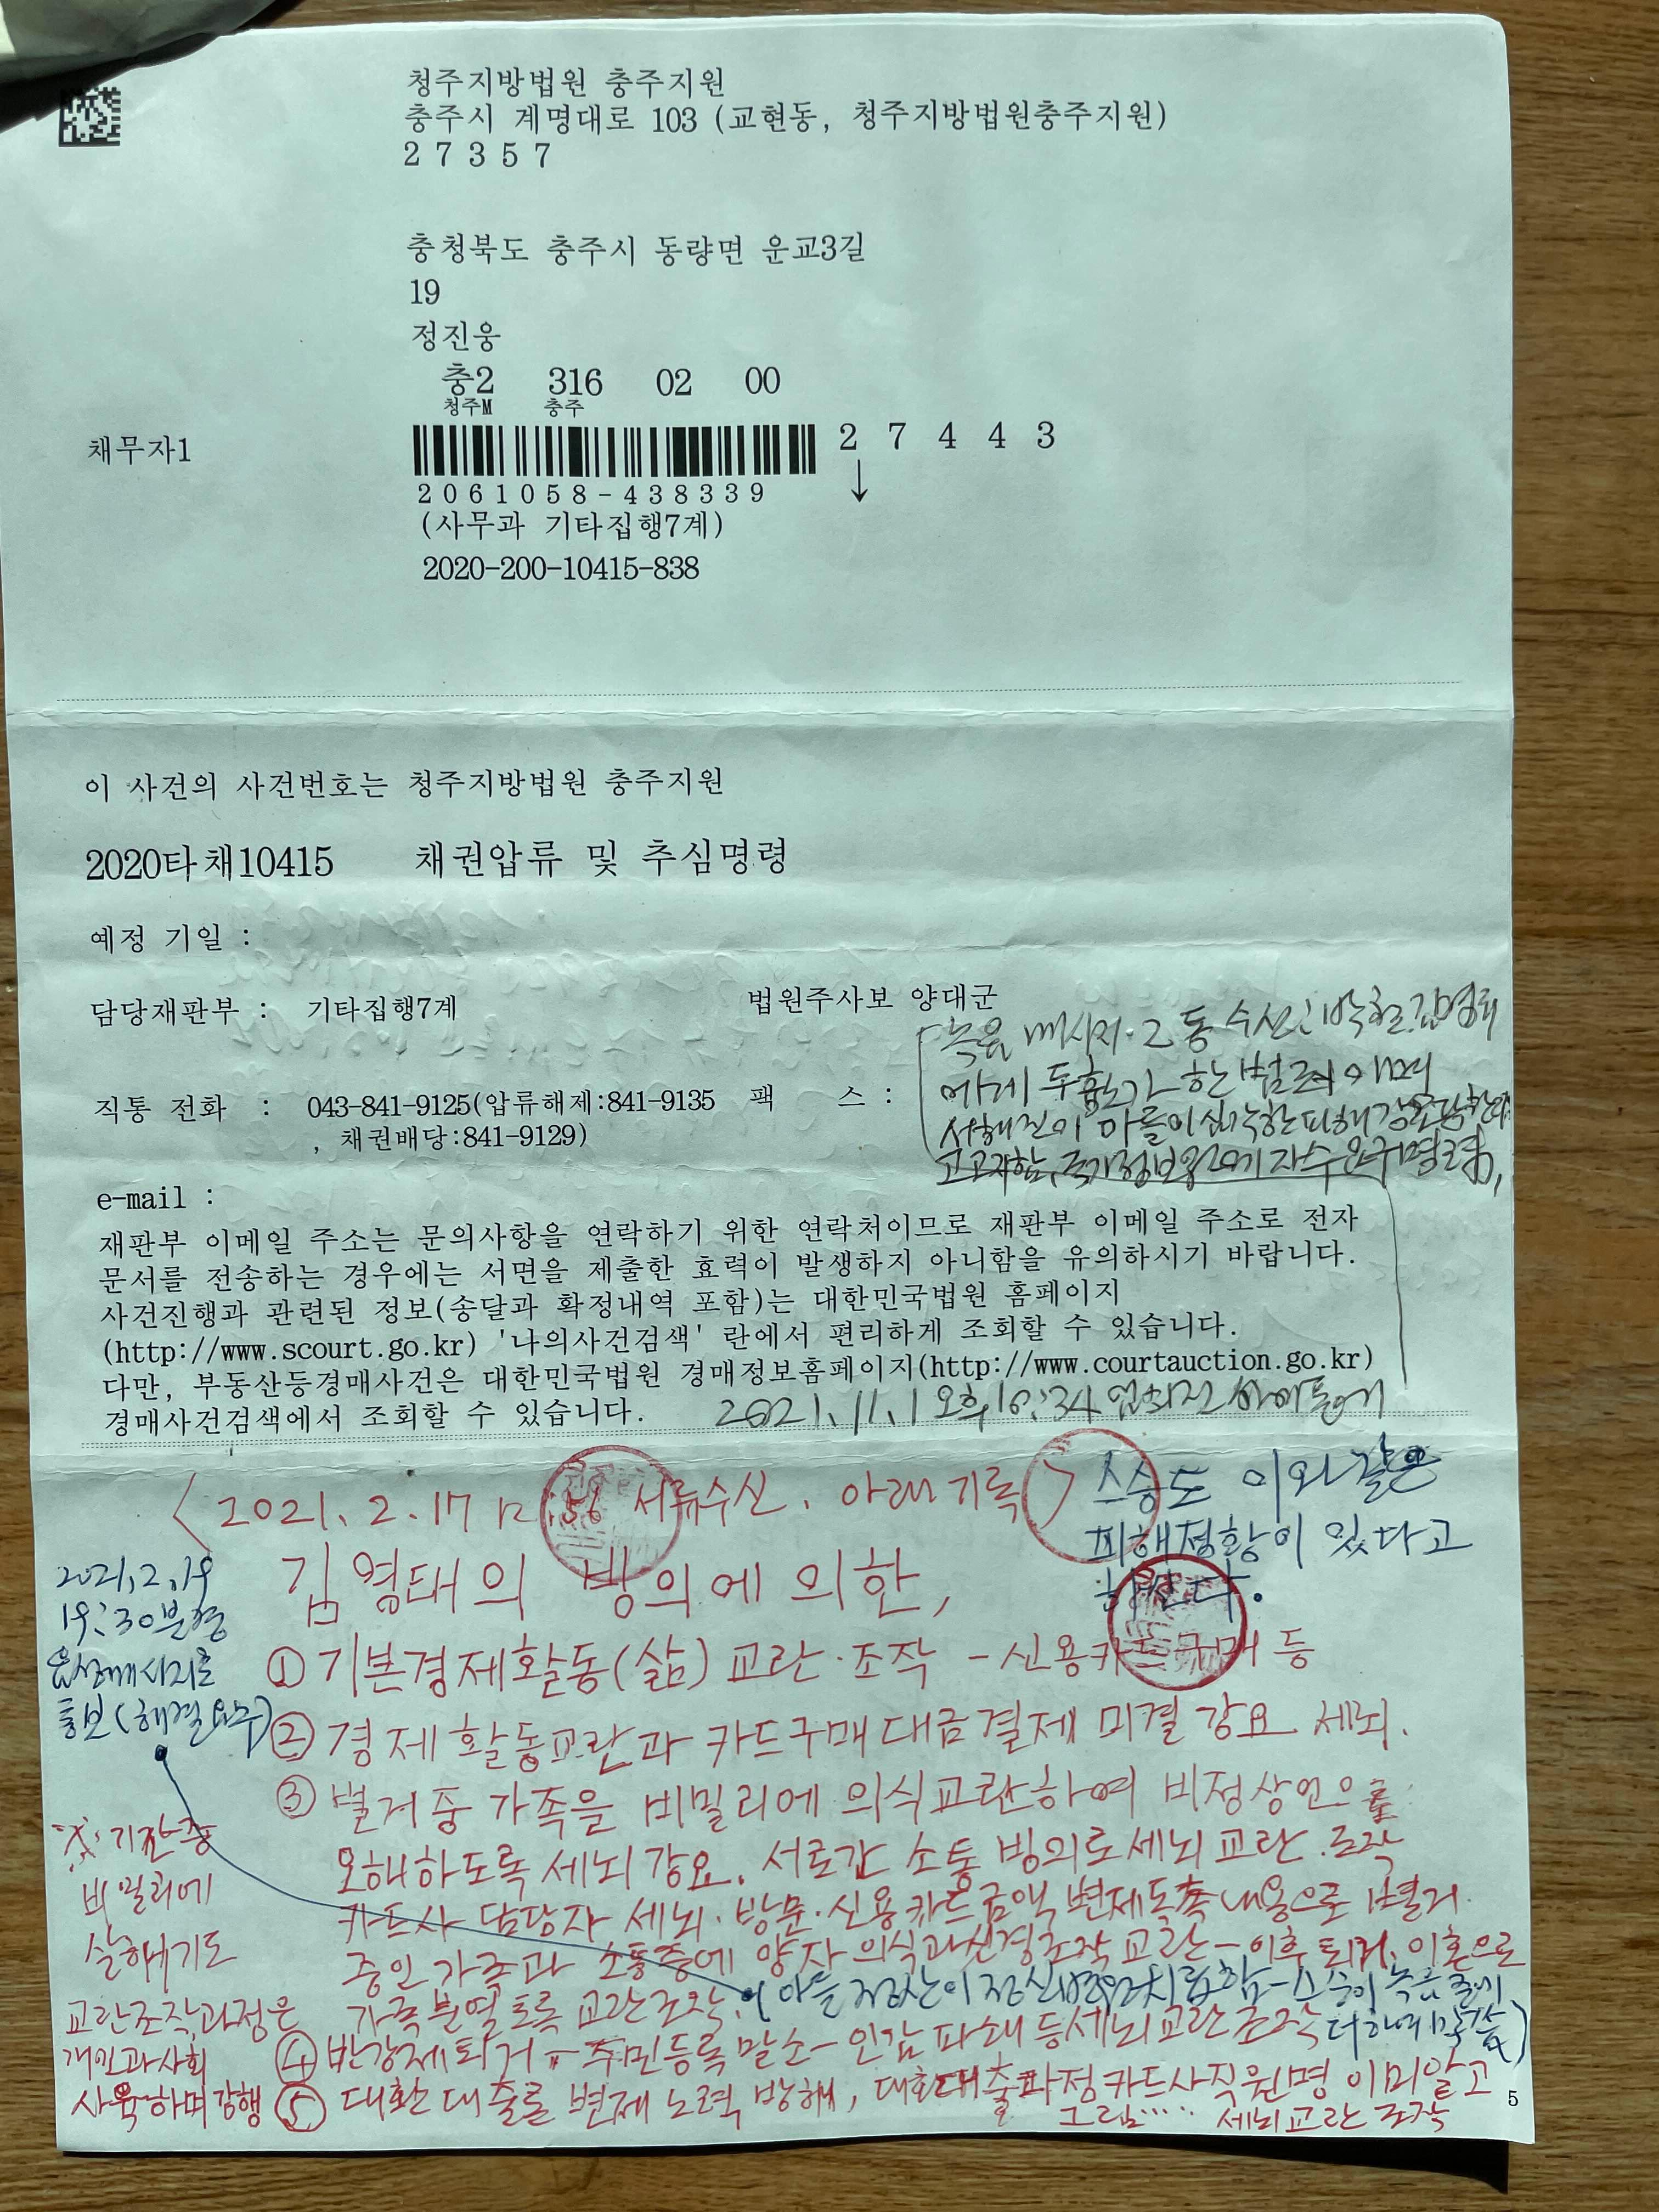 청주지방법원 충주지원
충주시 계명대로 103 (교현동, 청주지방법원충주지원)
2 7 3 5 7
충청북도 충주시 동량면 운교3길
19
정진웅
충2 316 02 00
청주M 충주
채무자1
2 7 4 4 3
↓
2 0 6 1 0 5 8 - 4 3 8 3 3 9
(사무과 기타집행7계)
2020-200-10415-838
이 사건의 사건번호는 청주지방법원 충주지원
2020타채10415 채권압류 및 추심명령
예정 기일 :
담당재판부 : 기타집행7계 법원주사보 양대군
직통 전화 : 043-841-9125(압류해제:841-9135 팩 스 :
, 채권배당:841-9129)
녹음 메시지. 2동 수신
에게
피해
e-mail :
재판부 이메일 주소는 문의사항을 연락하기 위한 연락처이므로 재판부 이메일 주소로 전자
문서를 전송하는 경우에는 서면을 제출한 효력이 발생하지 아니함을 유의하시기 바랍니다.
사건진행과 관련된 정보(송달과 확정내역 포함)는 대한민국법원 홈페이지
(http://www.scourt.go.kr) '나의사건검색' 란에서 편리하게 조회할 수 있습니다.
다만, 부동산등경매사건은 대한민국법원 경매정보홈페이지(http://www.courtauction.go.kr)
경매사건검색에서 조회할 수 있습니다.
2021. 11. 1 오후
<2021. 2. 17 12:56 서류수신. 아래기록>
스승도 이와같은
피해정황이 있다고
하신다.
김영태의 빙의에 의한,
2021, 2, 19
19:30분경
음성메시지로
통보(해결요구)
① 기본경제활동(삶) 교란·조작 - 신용카드 구매 등
② 경제활동교란과 카드구매대금결제 미결 강요 세뇌.
③ 별거중 가족을 비밀리에 의식교란하여 비정상인으로
오해하도록 세뇌강요. 서로간 소통 빙의로세뇌 교란.조작
카드사 담당자 세뇌·방문·신용카드금액 변제독촉내용으로 별거
중인 가족과 소통중에 양자 의식과신경조작 교란-이후퇴거, 이혼으로
가족분열토록 교란조작.
④ 반강제퇴거 - 주민등록말소 - 인감 파쇄 등세뇌교란 조작
⑤ 대환대출론 변제 노력 방해, 대환대출과정카드사직원명 이미알고
그림..... 세뇌교란 조작
※ 기간중
비밀리에
살해기도
교란조작과정은
개인과사회
사육하며강행
5